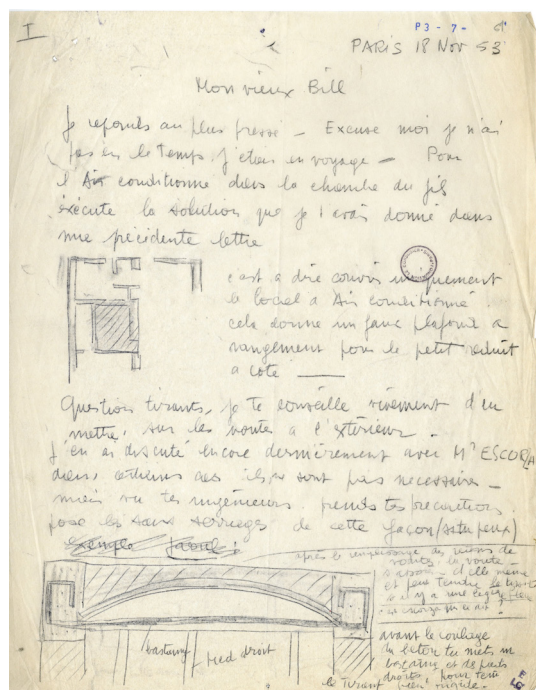 I
P3 - 7 -
PARIS 18 Nov 53
Mon vieux Bill
Je reponds au plus pressé - Excuse moi je n'ai
pas eu le temps, j'étais en voyage - Pour
l'Air conditionné dans la chambre du fils
éxécute la solution que je t'avais donné dans
ma précédente lettre
c'est a dire couvrir uniquement
le local a Air conditionné
cela donne un faux plafond a
rangement pour le petit réduit
a coté
Question tirants, je te conseille vivement d'en
mettre, sur les voutes a l'extérieur.
J'en ai discuté encore dernièrement avec Mr ESCORZA
dans certains cas ils ne sont pas necessaires -
mais vu tes ingénieurs prends tes precautions
pose les sans serrages de cette façon (si tu peux)
après le
voutes, la voute
s'assoit d'elle même
et peut tendre le
il y a une légère
avant le coulage
du béton tu mets un
bastaing et de pieds
droits, pour tenir
le tirant
bastaing
pied droit